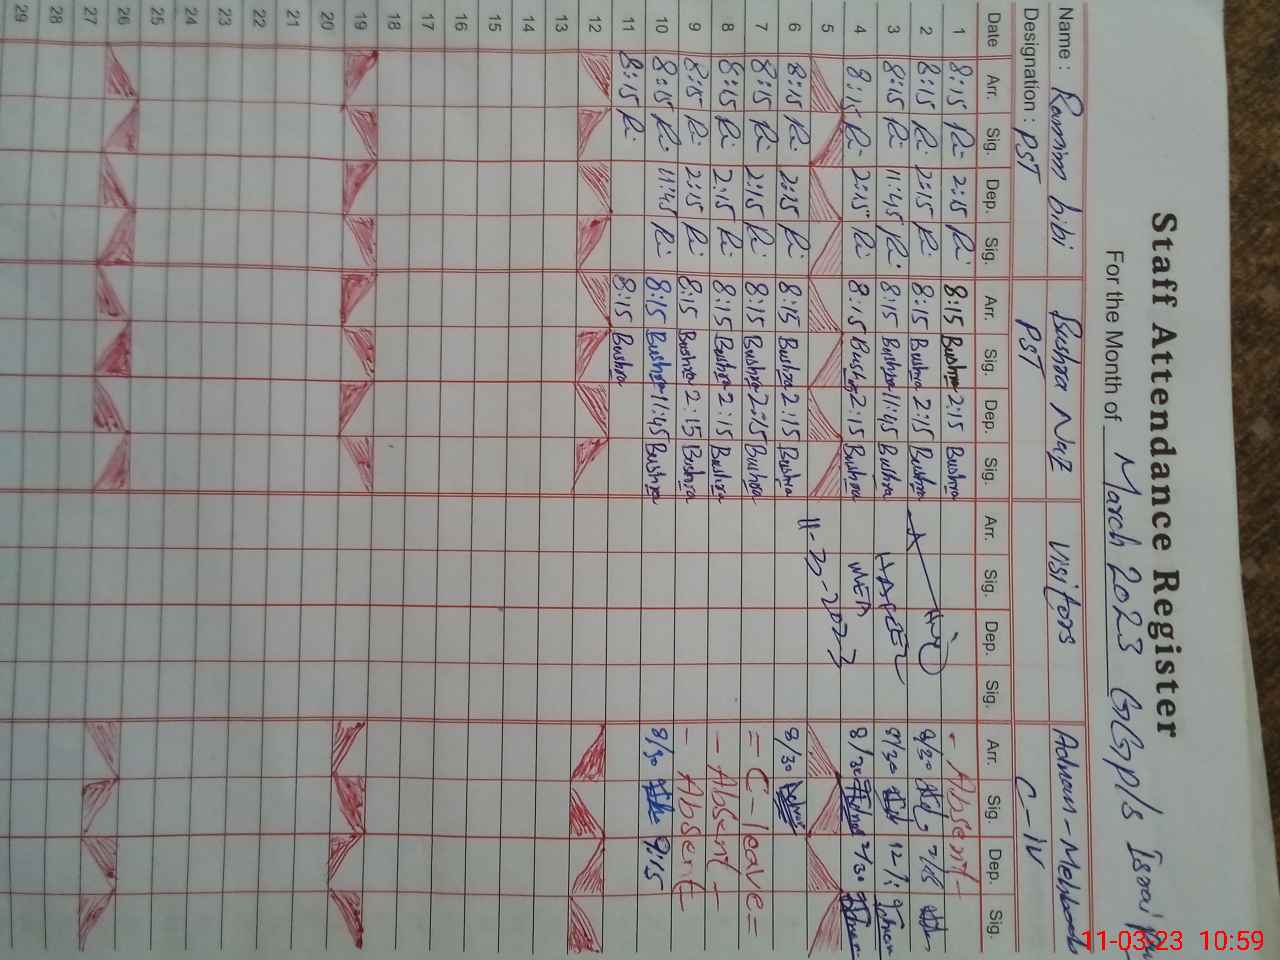 Staff Attendance Register
For the Month of March 2023 GGP/S
Name : bibi Bushra Naz Visitors Adnan-Mehboob
Designation : PST PST C-IV
Date Arr. Sig. Dep. Sig. Arr. Sig. Dep. Sig. Arr. Sig. Dep. Sig. Arr. Sig. Dep. Sig.
1 8:15 Ri 2:15 Ri 8:15 Bushra 2:15 Bushra - Absent -
2 8:15 Ri 2:15 Ri 8:15 Bushra 2:15 Bushra 8/30
3 8:15 Ri 11:45 Ri 8:15 Bushra 11:45 Bushra 8/30
4 8:15 Ri 2:15 Ri 8:15 Bushra 2:15 Bushra MEA 8/30 2/30
5 11-3-2023
6 8:15 Ri 2:15 Ri 8:15 Bushra 2:15 Bushra 8/30
7 8:15 Ri 2:15 Ri 8:15 Bushra 2:15 Bushra = C-leave =
8 8:15 Ri 2:15 Ri 8:15 Bushra 2:15 Bushra - Absent -
9 8:15 Ri 2:15 Ri 8:15 Bushra 2:15 Bushra - Absent
10 8:15 Ri 11:45 Ri 8:15 Bushra 11:45 Bushra 8/30 9:15
11 8:15 Ri 8:15 Bushra
12
13
14
15
16
17
18
19
20
21
22
23
24
25
26
27
28
29
11-03-23 10:59